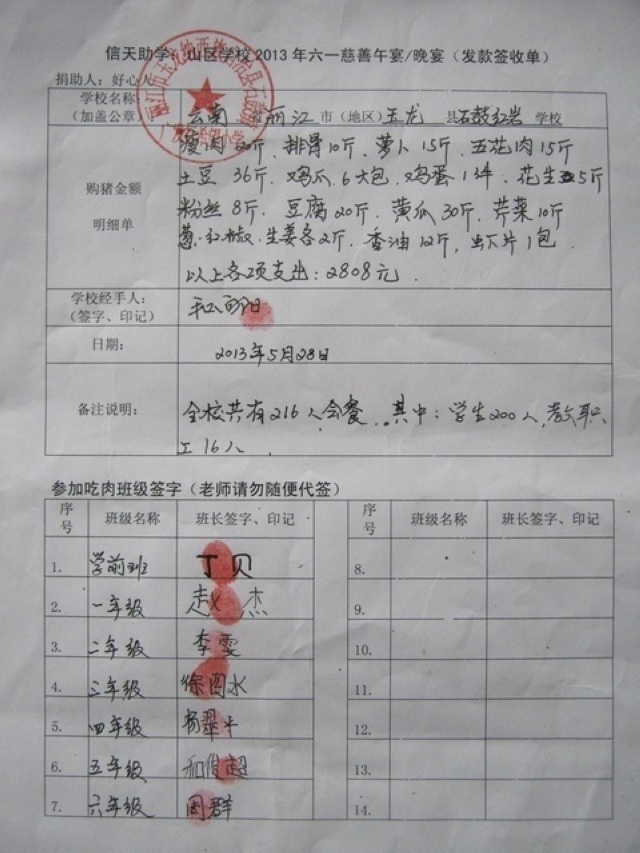 信天助学：山区学校2013年六一慈善午宴/晚宴（发款签收单）
捐助人：好心人
学校名称：
（加盖公章） 云南 丽江 市（地区） 玉龙 县 石鼓红岩 学校
购猪金额
明细单
瘦肉20斤．排骨10斤．萝卜15斤．五花肉15斤
土豆36斤．鸡爪6大包．鸡蛋1件．花生5斤
粉丝8斤．豆腐20斤．黄瓜30斤．芹菜10斤
葱．红椒．生姜各2斤．香油12斤，虾片1包．
以上各项支出：2808元．
学校经手人：
（签字、印记） 和
日期： 2013年5月28日
备注说明： 全校共有216人会餐．其中：学生200人，教职
工16人．
参加吃肉班级签字（老师请勿随便代签）
序号 班级名称 班长签字、印记 序号 班级名称 班长签字、印记
1. 学前班 丁贝 8.
2. 一年级 赵杰 9.
3. 二年级 李雯 10.
4. 三年级 徐图水 11.
5. 四年级 杨翠平 12.
6. 五年级 和俊超 13.
7. 六年级 周群 14.